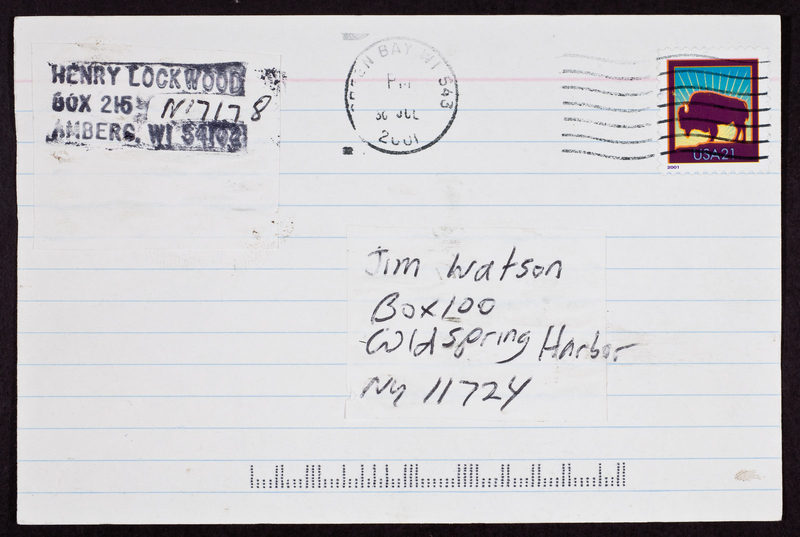 HENRY LOCKWOOD
BOX 215 N17178
AMBERG, WI 54102
GREEN BAY WI 543
PM
30 JUL
2001
USA21
2001
Jim Watson
Box 100
Cold spring Harbor
Ny 11724